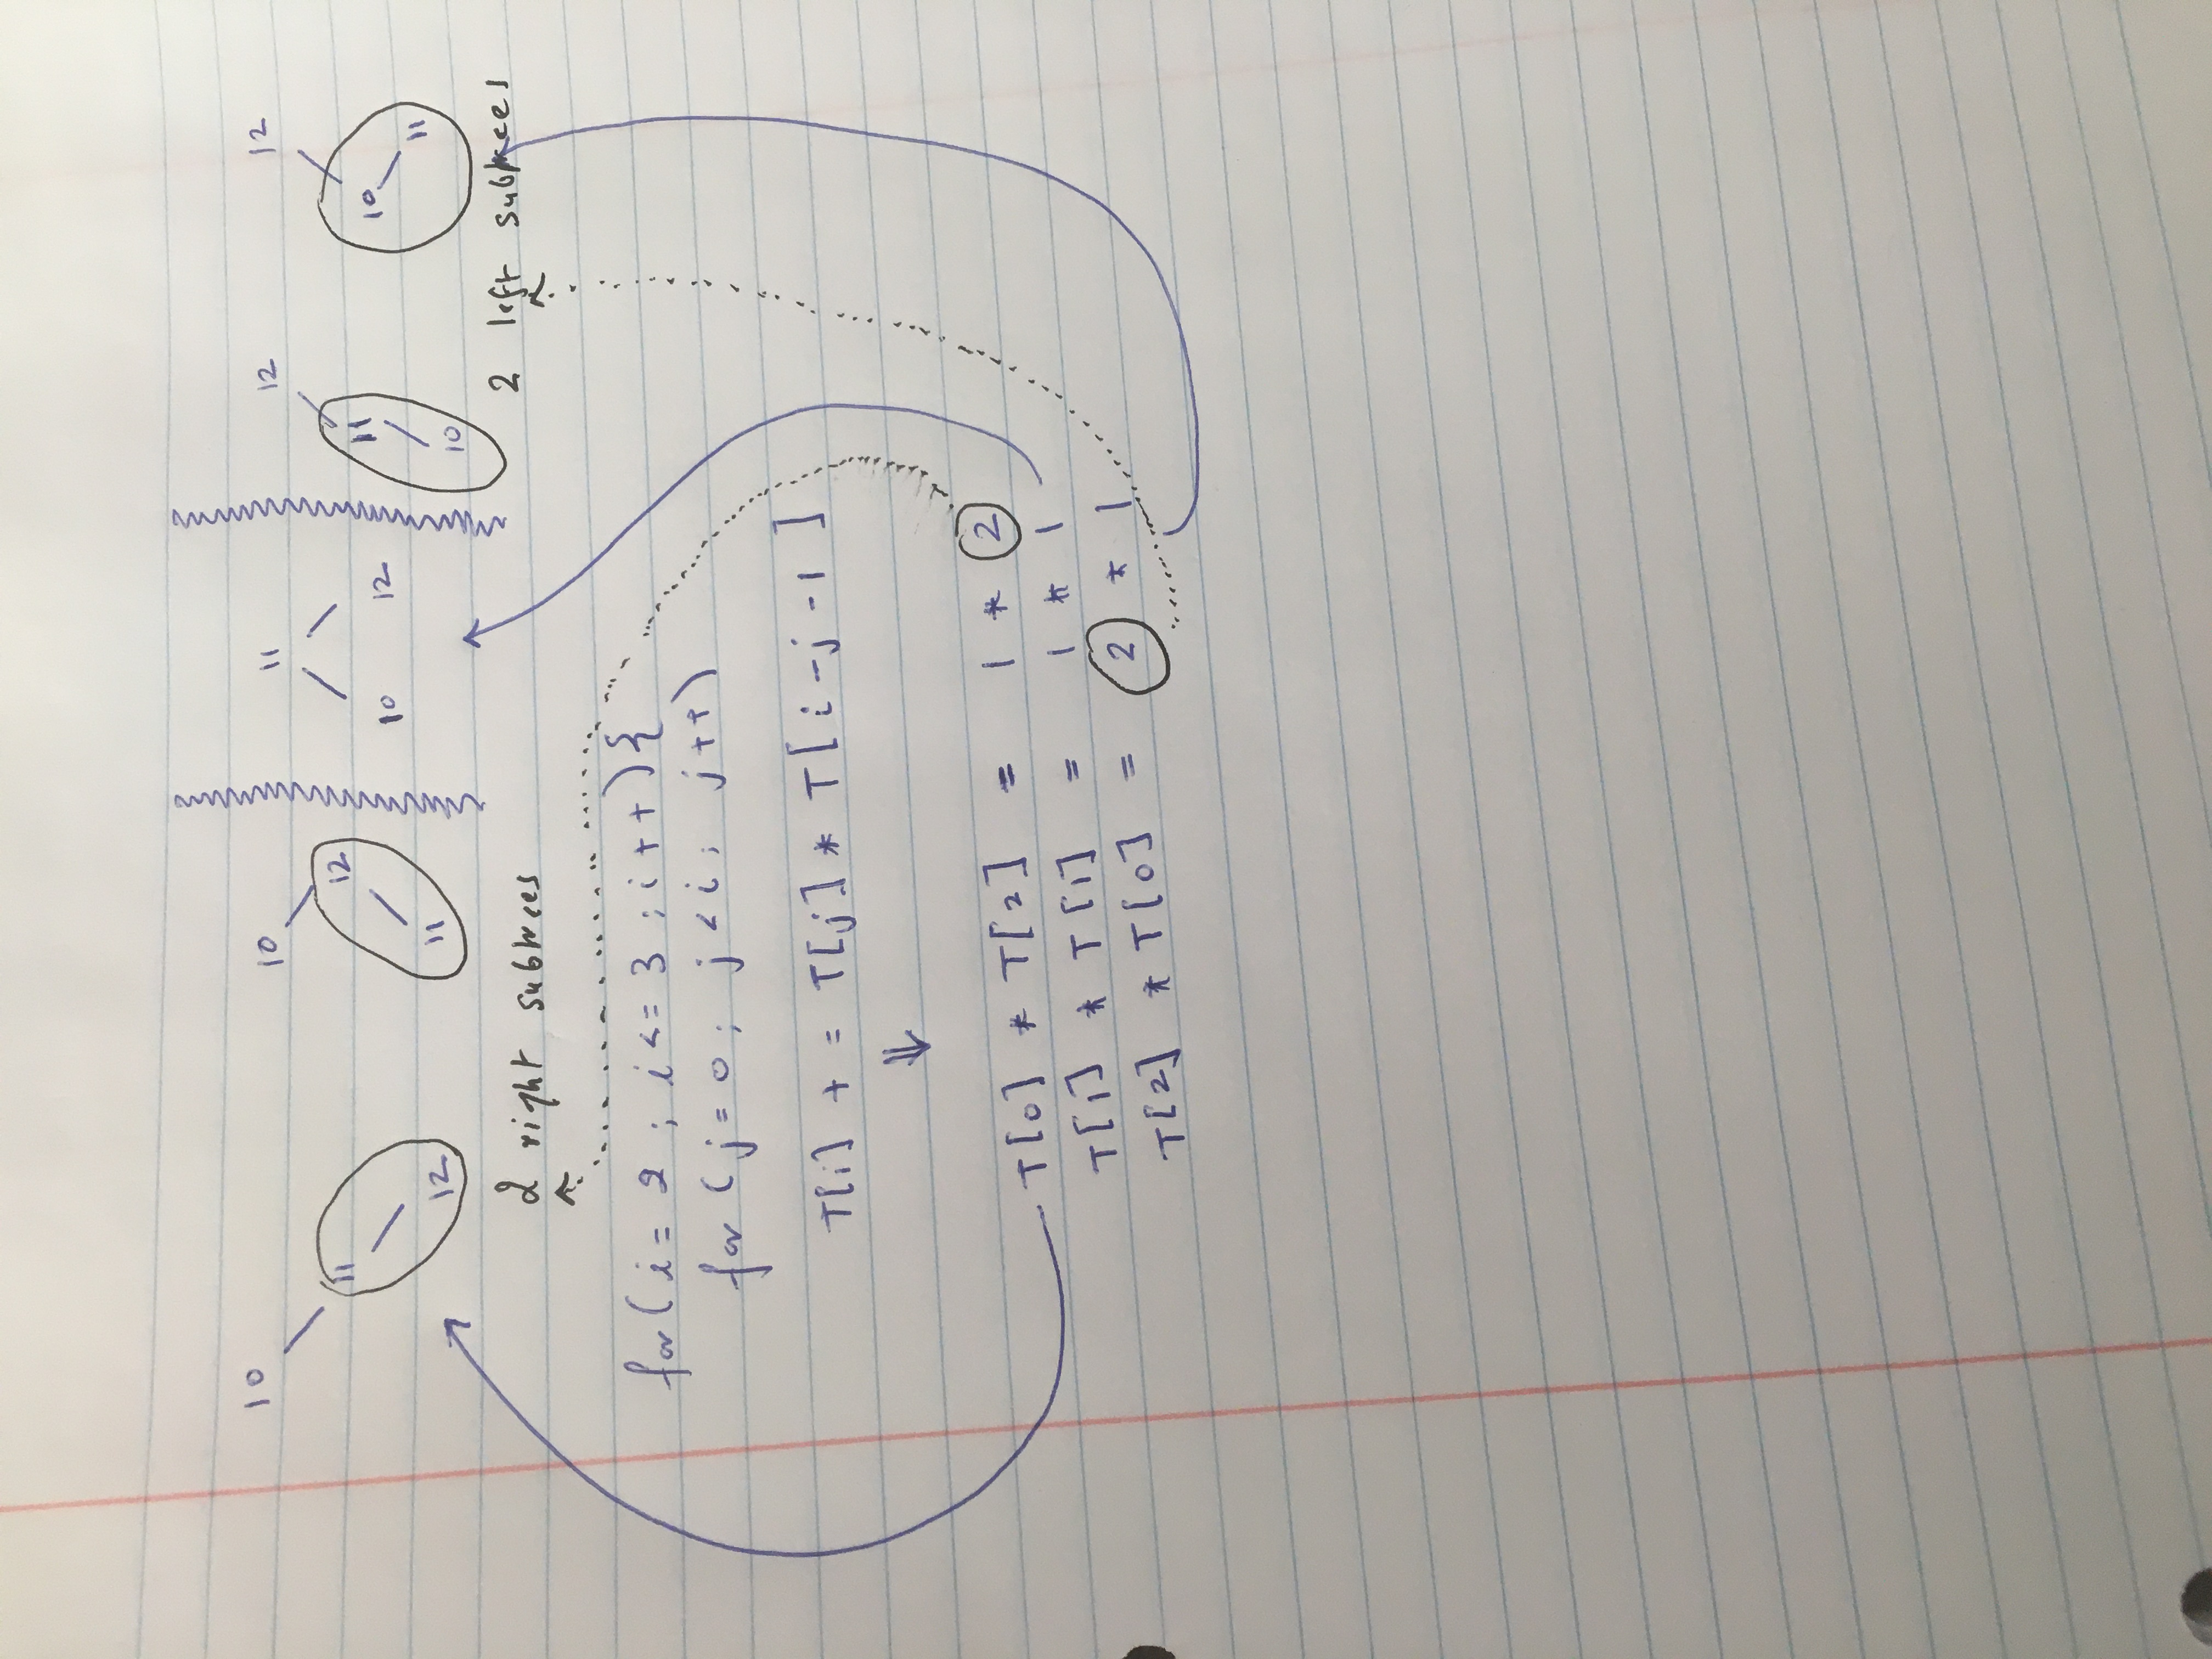 10 10 11 12 12
11 12 10 12 11 10
12 11 10 11
2 right subtrees 2 left subtrees
for ( i = 2 ; i <= 3 ; i++ ) {
for ( j = 0 ; j < i ; j++ )
T[i] + = T[j] * T[ i - j - 1 ]
⇓
T[0] * T[2] = 1 * 2
T[1] * T[1] = 1 * 1
T[2] * T[0] = 2 * 1